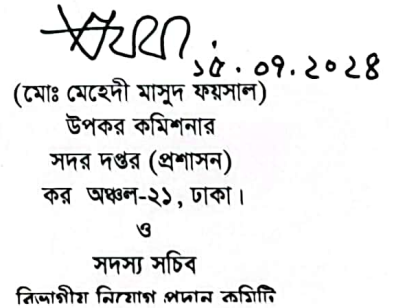 ১৫.০৭.২০২৪
(মোঃ মেহেদী মাসুদ ফয়সাল)
উপকর কমিশনার
সদর দপ্তর (প্রশাসন)
কর অঞ্চল-২১, ঢাকা।
ও
সদস্য সচিব
বিভাগীয় নিয়োগ প্রদান কমিটি